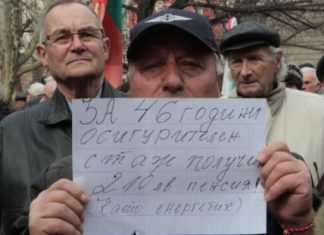 ЗА 46 години
осигурителен
стаж получих
210лв пенсия!
(като енергетик)